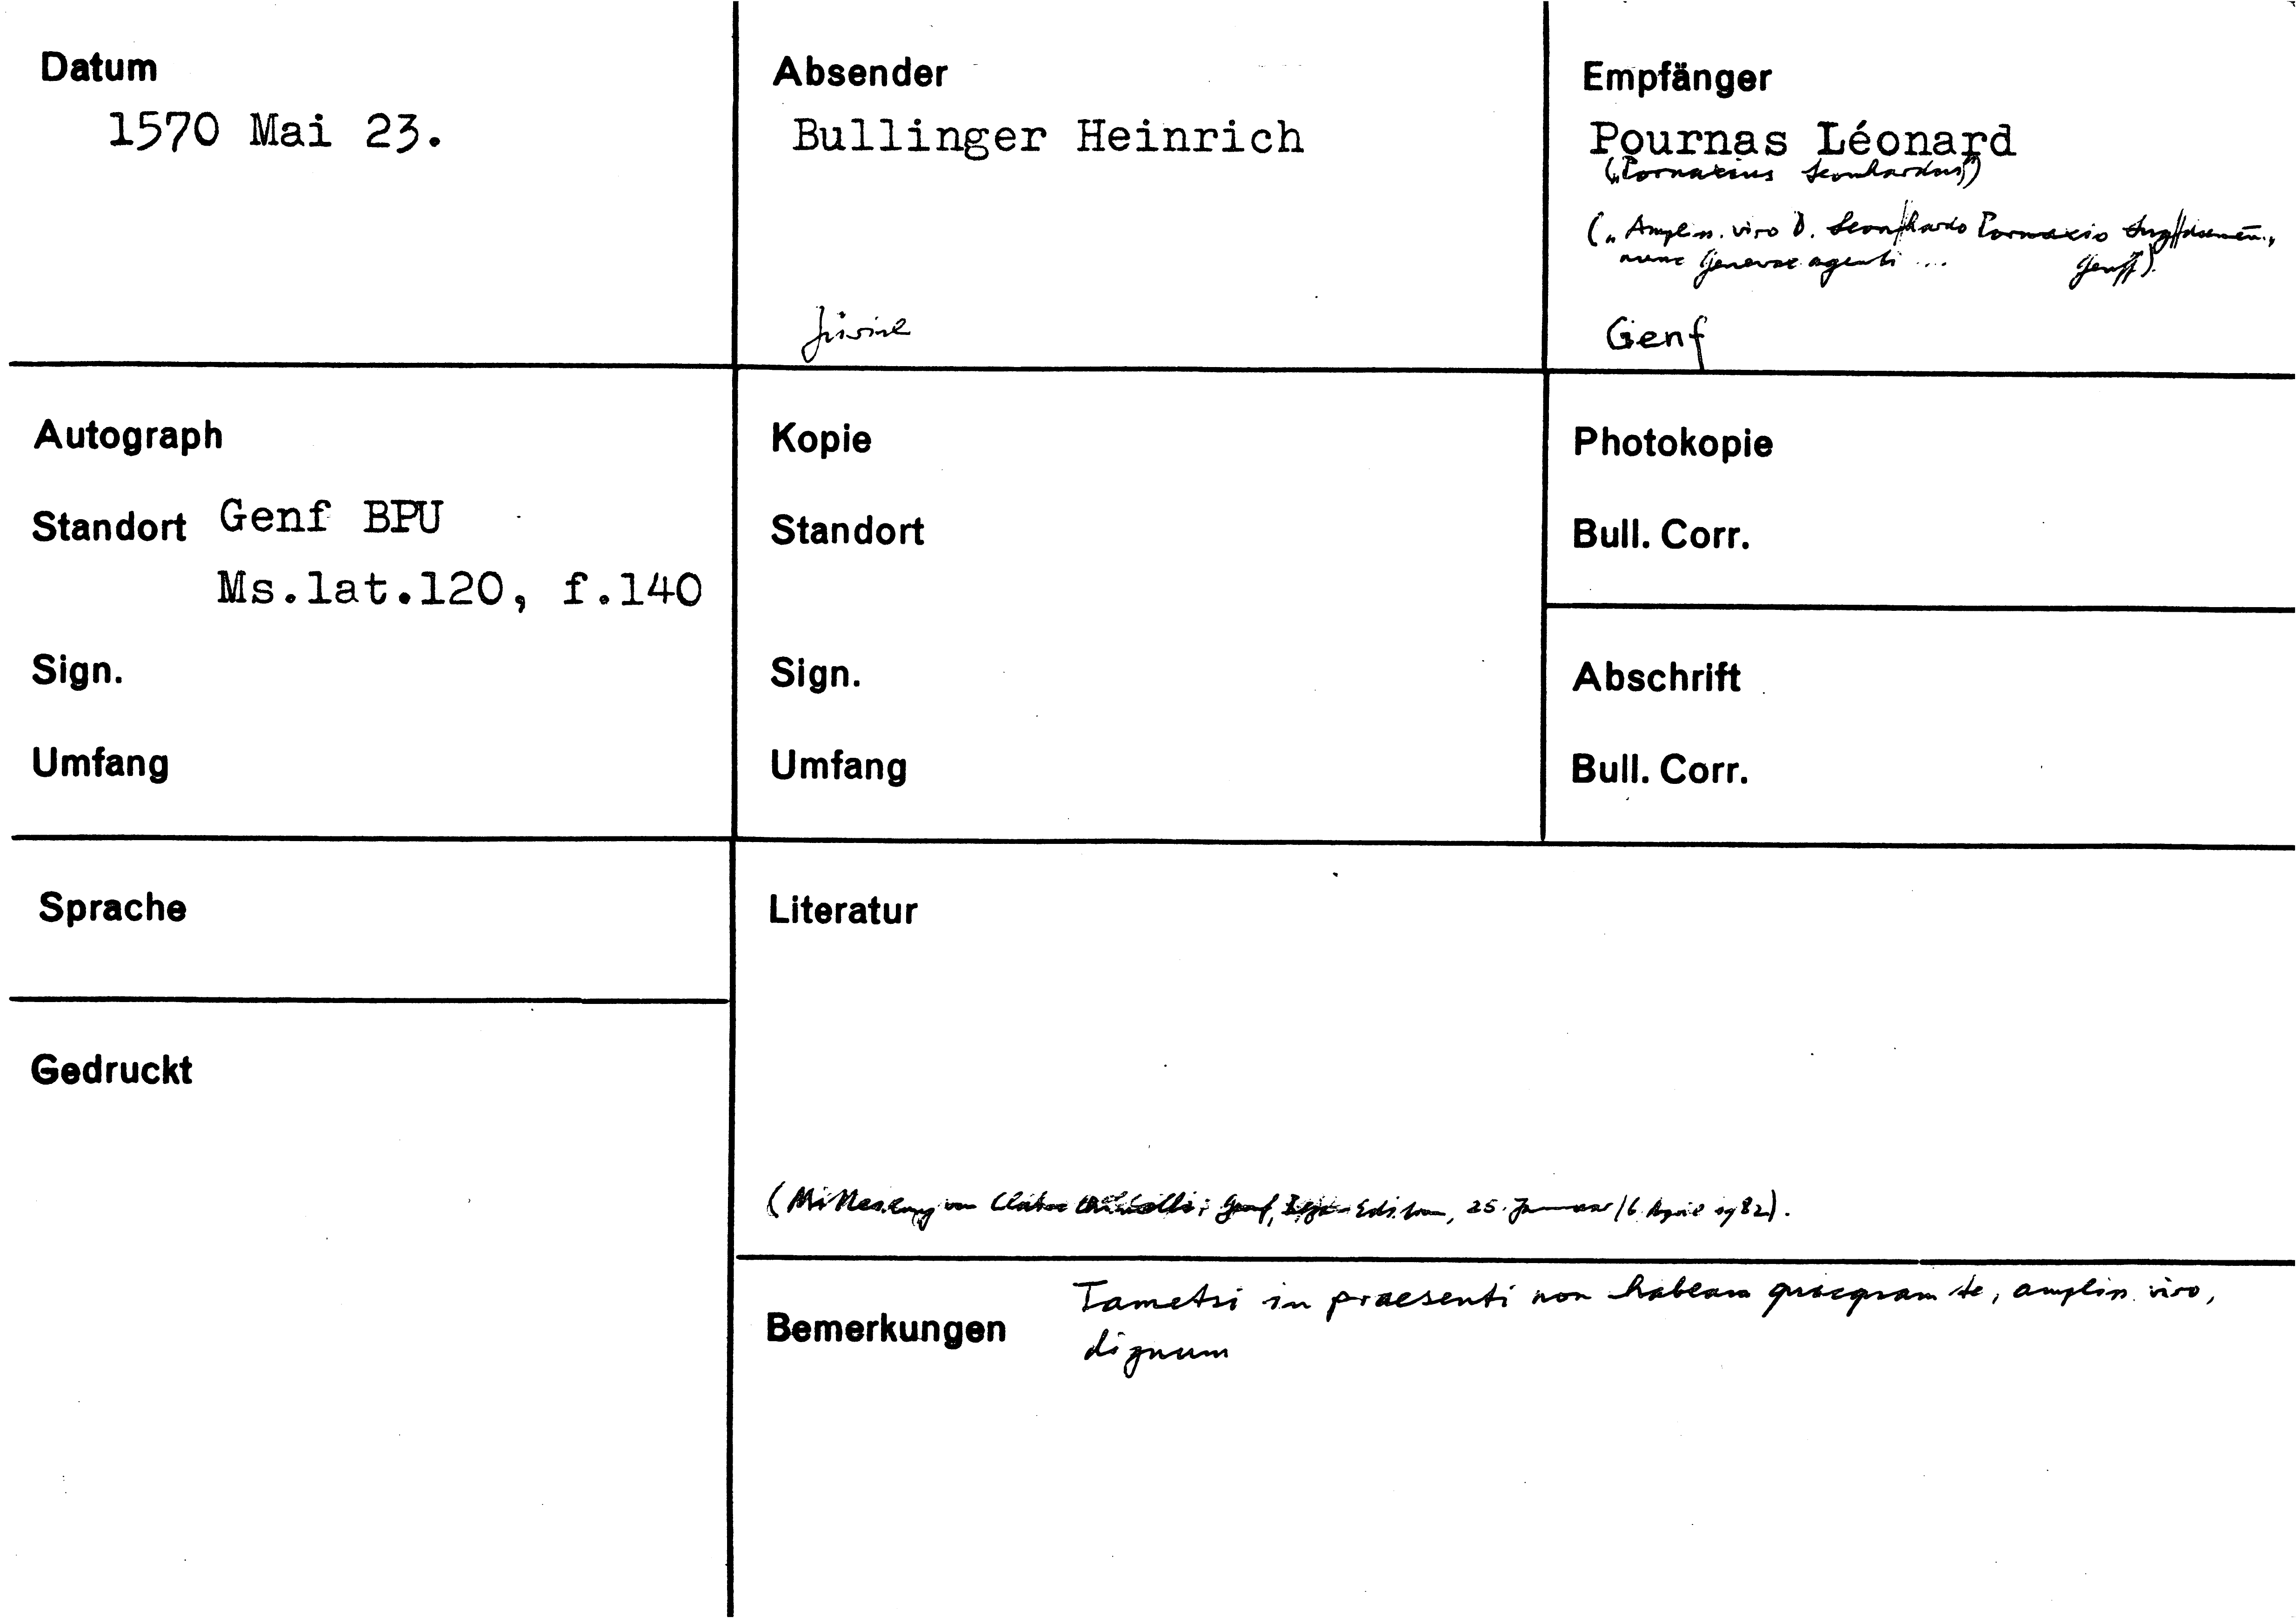 Datum
1570 Mai 23.
Absender
Bullinger Heinrich
Empfänger
Pournas Léonard
("Pornaxius Leonhardus")
(„Ampliss. viro D. Leonhardo Pornaxio
nunc Genevae agenti ... Genff).
Genf
Autograph
Standort Genf BPU
Ms.lat.120, f.140
Sign.
Umfang
Kopie
Standort
Sign.
Umfang
Photokopie
Bull. Corr.
Abschrift
Bull. Corr.
Sprache
Gedruckt
Literatur
(Mitteilung von Genf, Edition, 25. Januar/6. April 1982).
Bemerkungen
Tametsi in praesenti non habeam quicquam te, ampliss. viro,
dignum